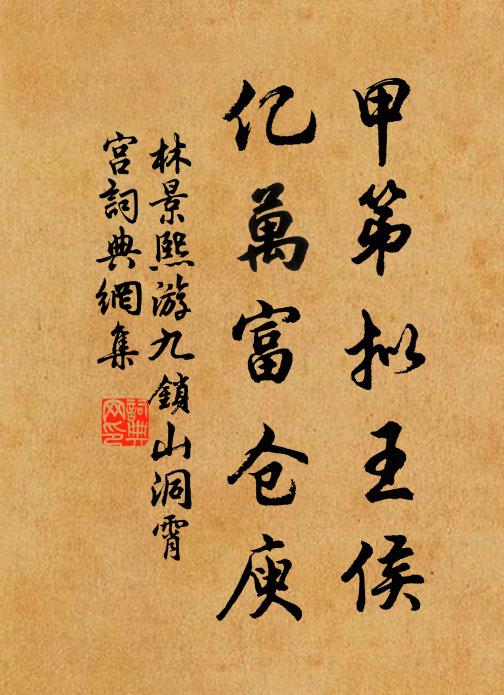 甲第拟王侯
亿萬富仓庾
林景熙游九鎖山洞霄
宫詞典網集
詞典
网印